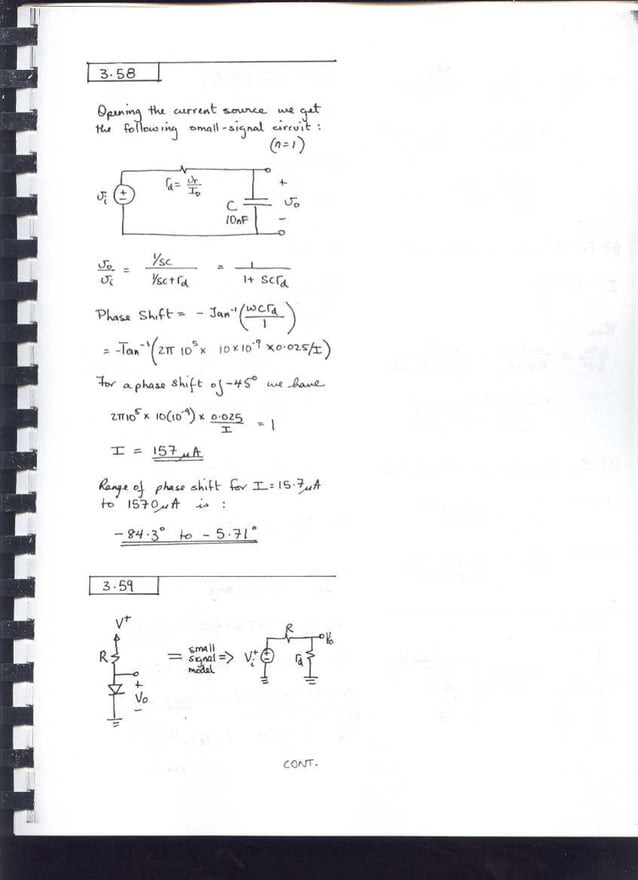 3.58
Opening the current source we get
the following small-signal circuit :
(n=1)
rd = VT/ID
υi
+
-
+
υo
-
C
10nF
υo/υi = (1/SC)/(1/SC + rd) = 1/(1 + SCrd)
Phase Shift = - Tan⁻¹(ωCrd/1)
= -Tan⁻¹(2π 10⁵ × 10×10⁻⁹ × 0.025/I)
For a phase shift of -45° we have
2π10⁵ × 10(10⁻⁹) × 0.025/I = 1
I = 157μA
Range of phase shift for I = 15.7μA
to 1570μA is :
-84.3° to -5.71°
3.59
V+
R
+
Vo
-
= small signal model =>
Vi+
+
-
R
rd
Vo
CONT.